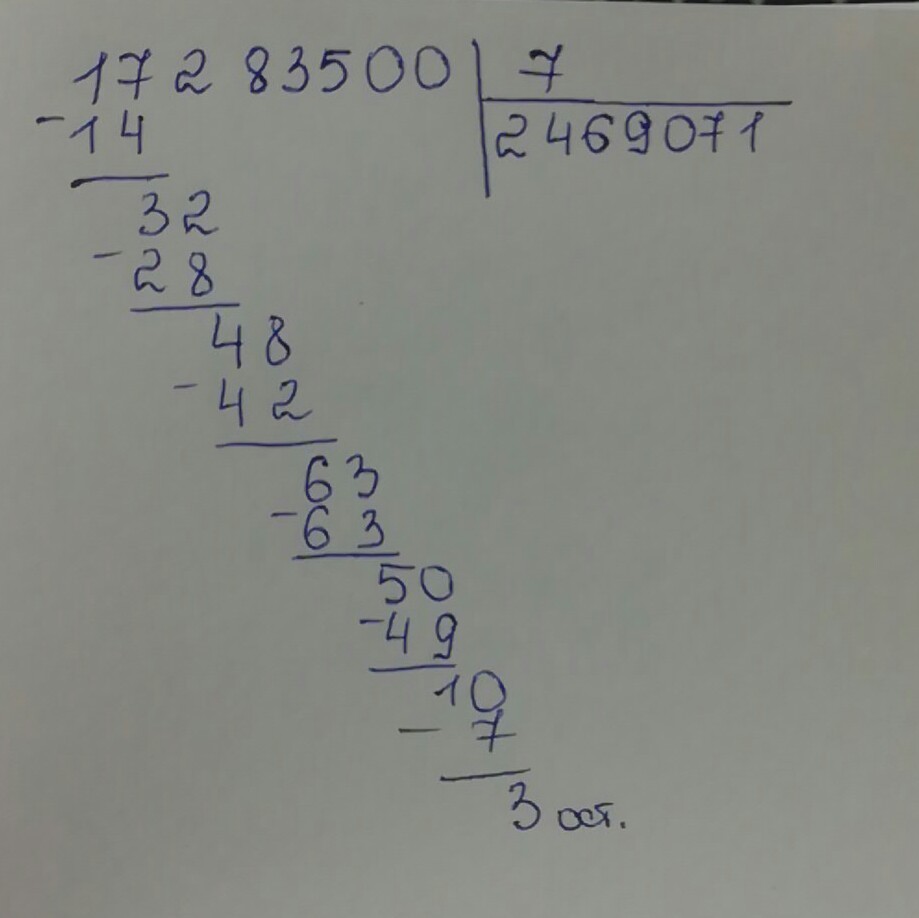 17283500 7
-14 2469071
32
-28
48
-42
63
-63
50
-49
10
-7
3 ост.